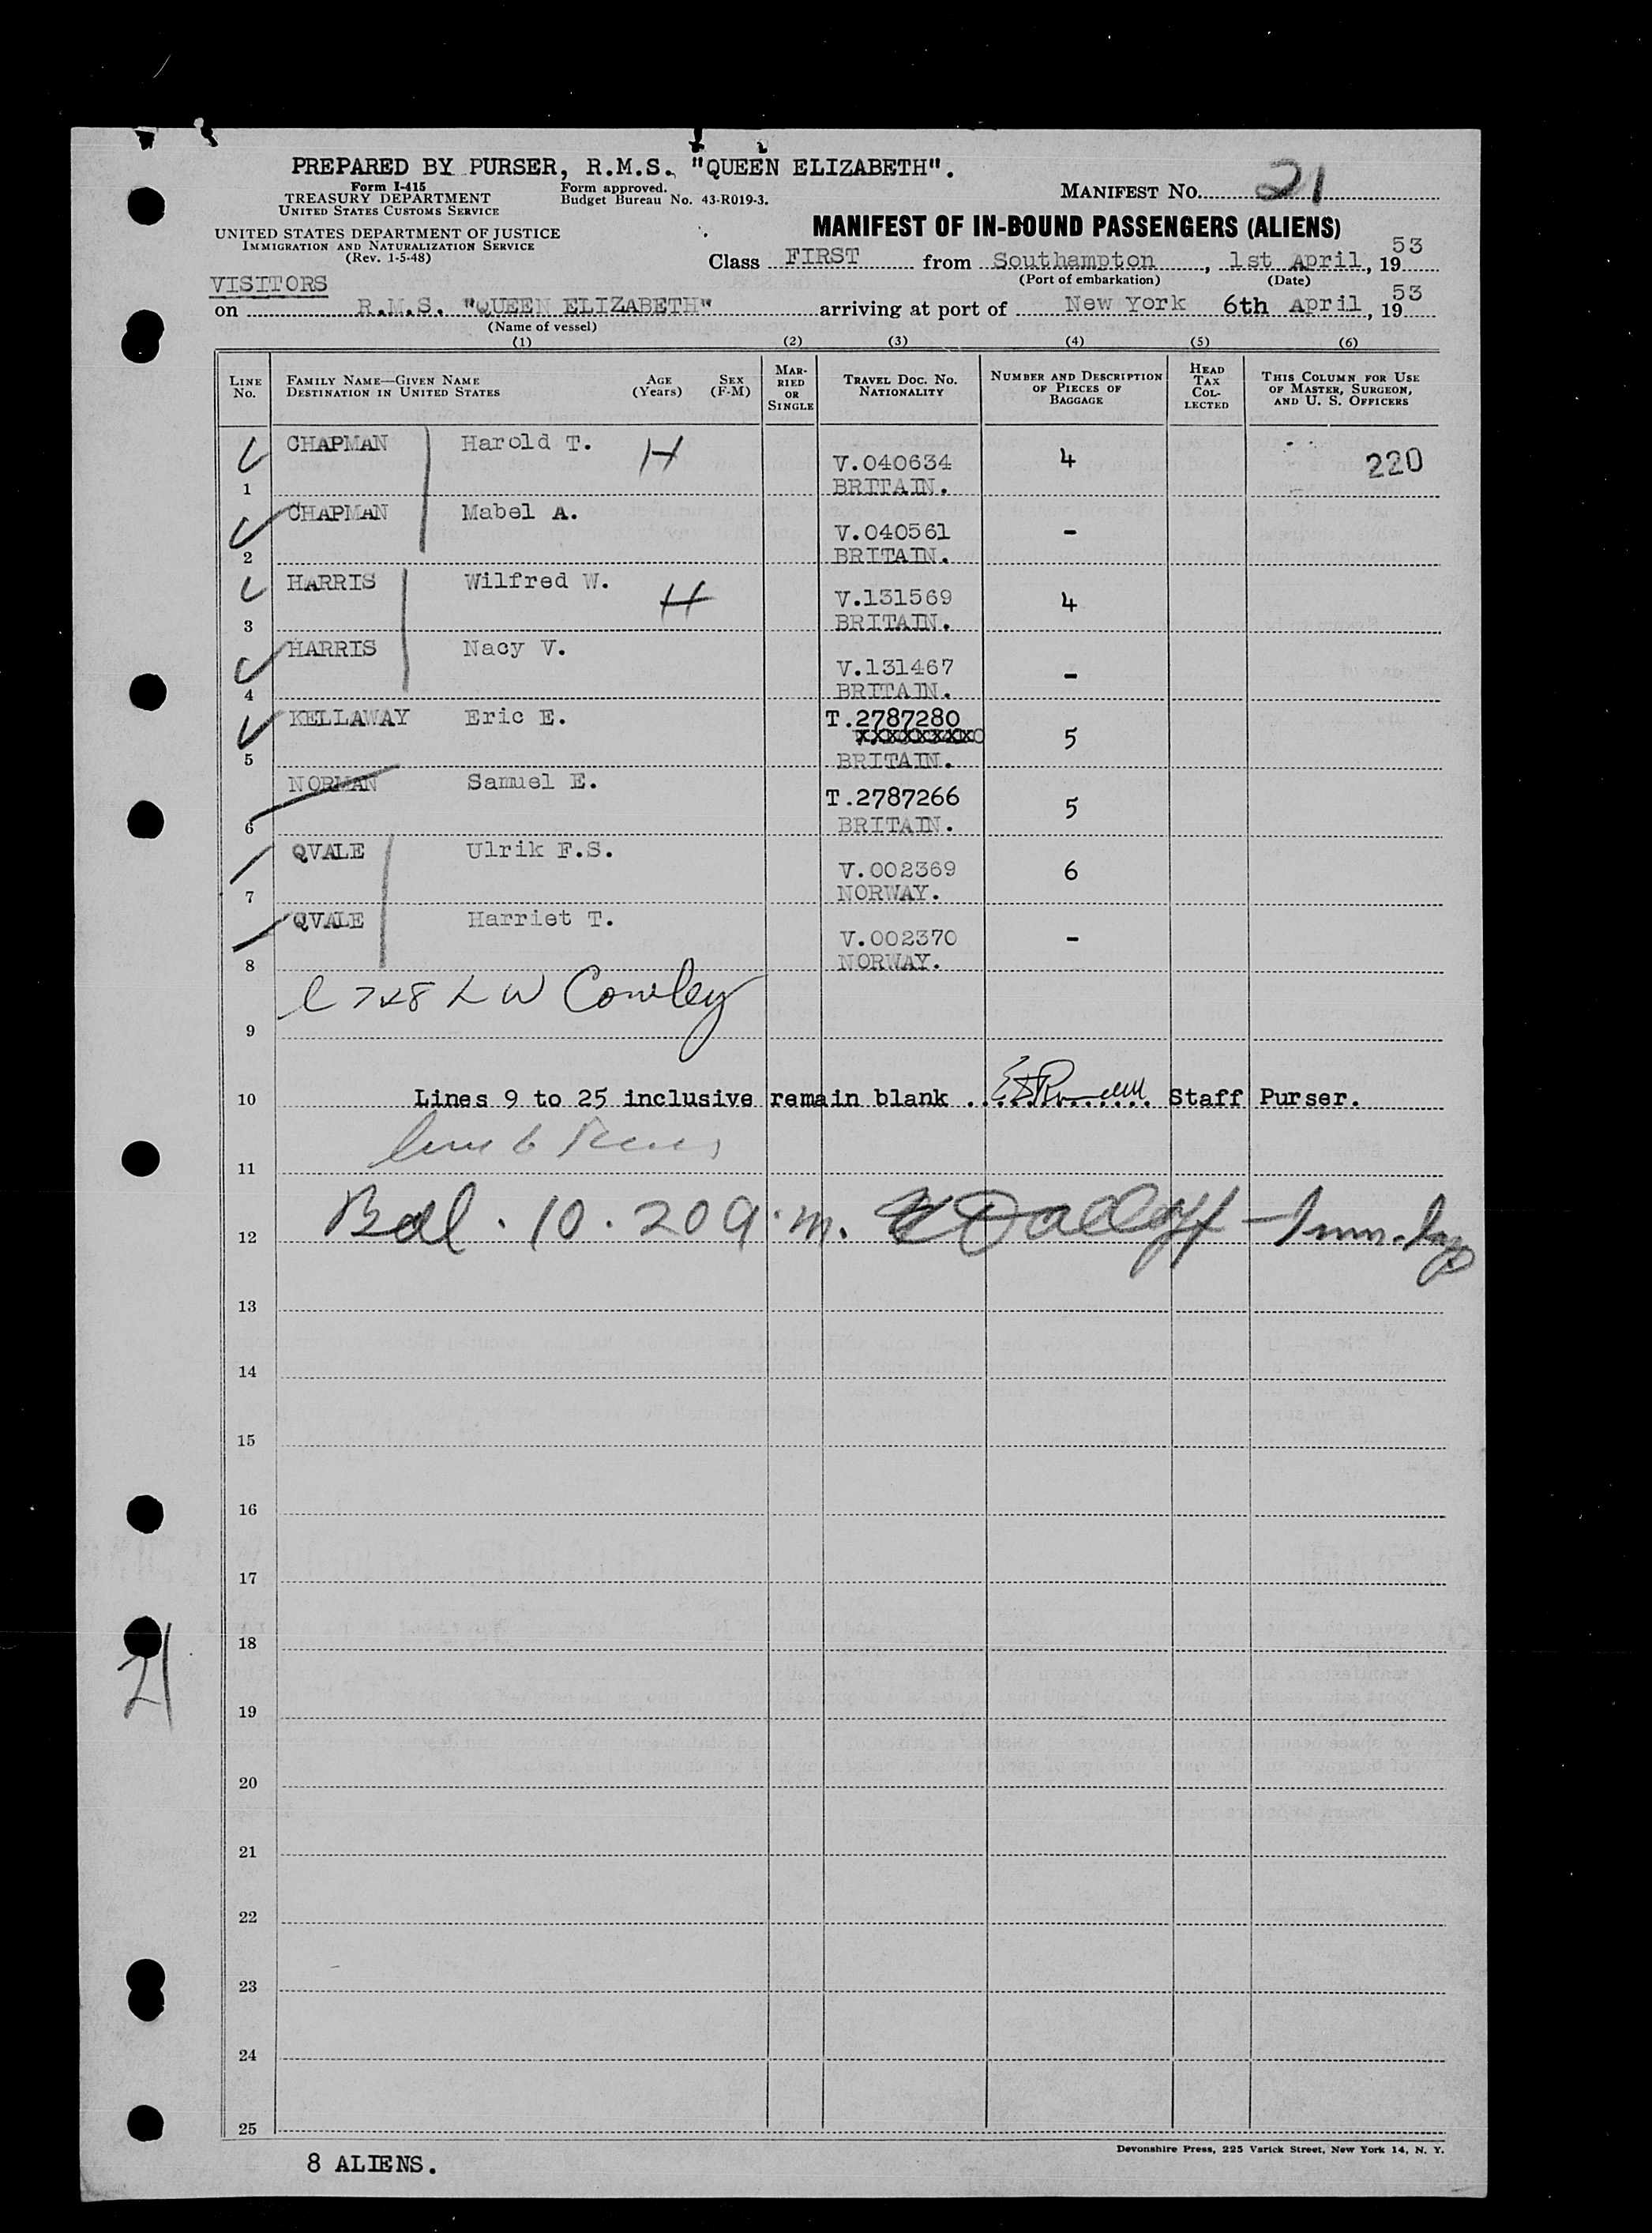 PREPARED BY PURSER, R.M.S. "QUEEN ELIZABETH".
Form I-415
TREASURY DEPARTMENT
UNITED STATES CUSTOMS SERVICE
Form approved.
Budget Bureau No. 43-R019-3.
MANIFEST NO. 21
UNITED STATES DEPARTMENT OF JUSTICE
IMMIGRATION AND NATURALIZATION SERVICE
(Rev. 1-5-48)
MANIFEST OF IN-BOUND PASSENGERS (ALIENS)
Class FIRST from Southampton, 1st April, 1953
(Port of embarkation) (Date)
VISITORS
on R.M.S. "QUEEN ELIZABETH" arriving at port of New York 6th April, 1953
(Name of vessel)
(1) (2) (3) (4) (5) (6)
LINE NO.
FAMILY NAME—GIVEN NAME
DESTINATION IN UNITED STATES
AGE (Years)
SEX (F-M)
MARRIED OR SINGLE
TRAVEL DOC. NO.
NATIONALITY
NUMBER AND DESCRIPTION OF PIECES OF BAGGAGE
HEAD TAX COLLECTED
THIS COLUMN FOR USE OF MASTER, SURGEON, AND U. S. OFFICERS
1 CHAPMAN Harold T. H V.040634 4 220
BRITAIN.
2 CHAPMAN Mabel A. V.040561 -
BRITAIN.
3 HARRIS Wilfred W. H V.131569 4
BRITAIN.
4 HARRIS Nacy V. V.131467 -
BRITAIN.
5 KELLAWAY Eric E. T.2787280 5
BRITAIN.
6 NORMAN Samuel E. T.2787266 5
BRITAIN.
7 QVALE Ulrik F.S. V.002369 6
NORWAY.
8 QVALE Harriet T. V.002370 -
NORWAY.
9 W Cowley
10 Lines 9 to 25 inclusive remain blank Staff Purser.
11
12 Bal. 10.20 a.m.
13
14
15
16
17
18
19
20
21
22
23
24
25
21
8 ALIENS.
Devonshire Press, 225 Varick Street, New York 14, N. Y.